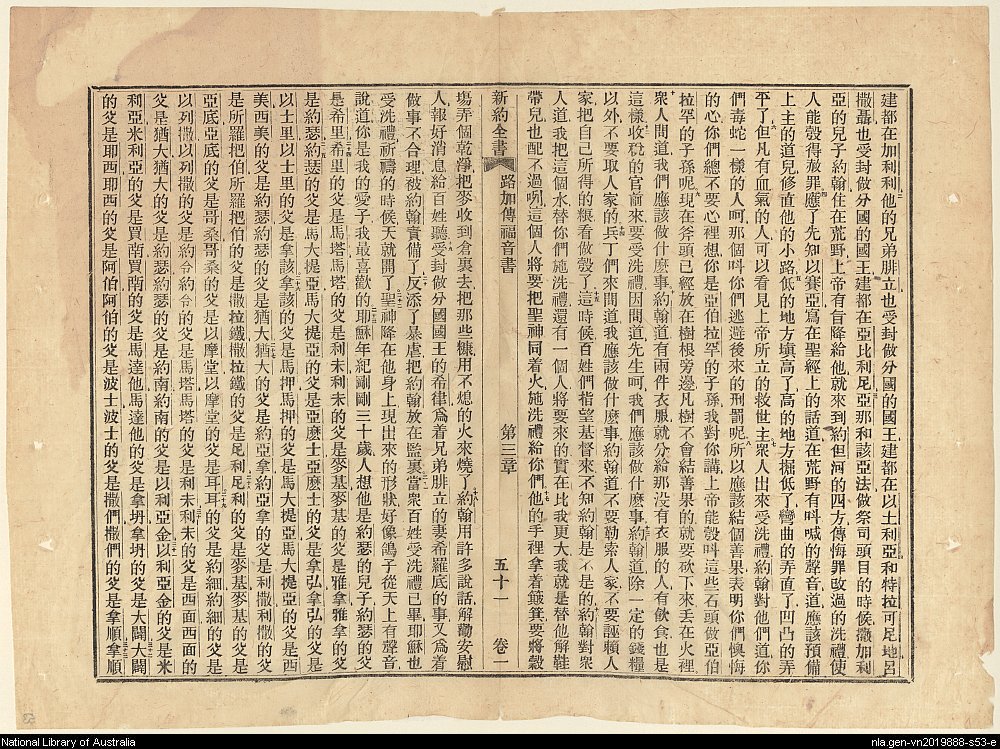 建都在加利利他的兄弟腓立也受封做分國的國王建都在以土利亞和特拉可尼地呂
撒聶也受封做分國的國王建都在亞比利尼亞那和該亞法做祭司頭目的時候撒加利
亞的兒子約翰住在荒野上帝有旨降給他就來到約但河的四方傳悔罪改過的洗禮使
人能彀得赦罪應了先知以賽亞寫在聖經上的話道在荒野有呌喊的聲音道應該預備
上主的道兒修直他的小路低的地方填高了高的地方掘低了彎曲的弄直了凹凸的弄
平了但凡有血氣的人可以看見上帝所立的救世主衆人出來受洗禮約翰對他們道你
們毒蛇一樣的人呵那個呌你們逃避後來的刑罰呢所以應該結個善果表明你們懊悔
的心你們總不要心裡想你是亞伯拉罕的子孫我對你講上帝能彀呌這些石頭做亞伯
拉罕的子孫呢現在斧頭已經放在樹根旁邊凡樹不會結善果的就要砍下來丟在火裡
衆人問道我們應該做什麽事約翰道有兩件衣服就分給那没有衣服的人有飲食也是
這樣收稅的官前來要受洗禮因問道先生呵我們應該做什麽事約翰道除一定的錢糧
以外不要取人家的兵丁們來問道我應該做什麽事約翰道不要勒索人家不要誣賴人
家把自己所得的糧看做彀了這時候百姓們指望基督來不知約翰是不是的約翰對衆
人道我把這個水替你們施洗禮還有一個人將要來的實在比我更大我就是替他解鞋
帶兒也配不過呢這個人將要把聖神同着火施洗禮給你們他的手裡拿着簸箕要將穀
新約全書 路加傳福音書 第三章 五十一 卷一
塲弄個乾淨把麥收到倉裏去把那些糠用不熄的火來燒了約翰用許多說話解勸安慰
人報好消息給百姓聽受封做分國國王的希律爲着兄弟腓立的妻希羅底的事又爲着
做事不合理被約翰責備了反添了暴虐把約翰放在監裏當衆百姓受洗禮已畢耶穌也
受洗禮祈禱的時候天就開了聖神降在他身上現出來的形狀好像鴿子從天上有聲音
說道你是我的愛子我最喜歡的耶穌年紀剛剛三十歲人想他是約瑟的兒子約瑟的父
是希里希里的父是馬塔馬塔的父是利未利未的父是麥基麥基的父是雅拿雅拿的父
是約瑟約瑟的父是馬大提亞馬大提亞的父是亞麽士亞麽士的父是拿弘拿弘的父是
以士里以士里的父是拿該拿該的父是馬押馬押的父是馬大提亞馬大提亞的父是西
美西美的父是約瑟約瑟的父是猶大猶大的父是約亞拿約亞拿的父是利撒利撒的父
是所羅把伯所羅把伯的父是撒拉鐵撒拉鐵的父是尼利尼利的父是麥基麥基的父是
亞底亞底的父是哥桑哥桑的父是以摩堂以摩堂的父是耳耳的父是約細約細的父是
以列撒以列撒的父是約令約令的父是馬塔馬塔的父是利未利未的父是西面西面的
父是猶大猶大的父是約瑟約瑟的父是約南約南的父是以利亞金以利亞金的父是米
利亞米利亞的父是買南買南的父是馬達他馬達他的父是拿坍拿坍的父是大闢大闢
的父是耶西耶西的父是阿伯阿伯的父是波士波士的父是撒們撒們的父是拿順拿順
National Library of Australia
nla.gen-vn2019888-s53-e